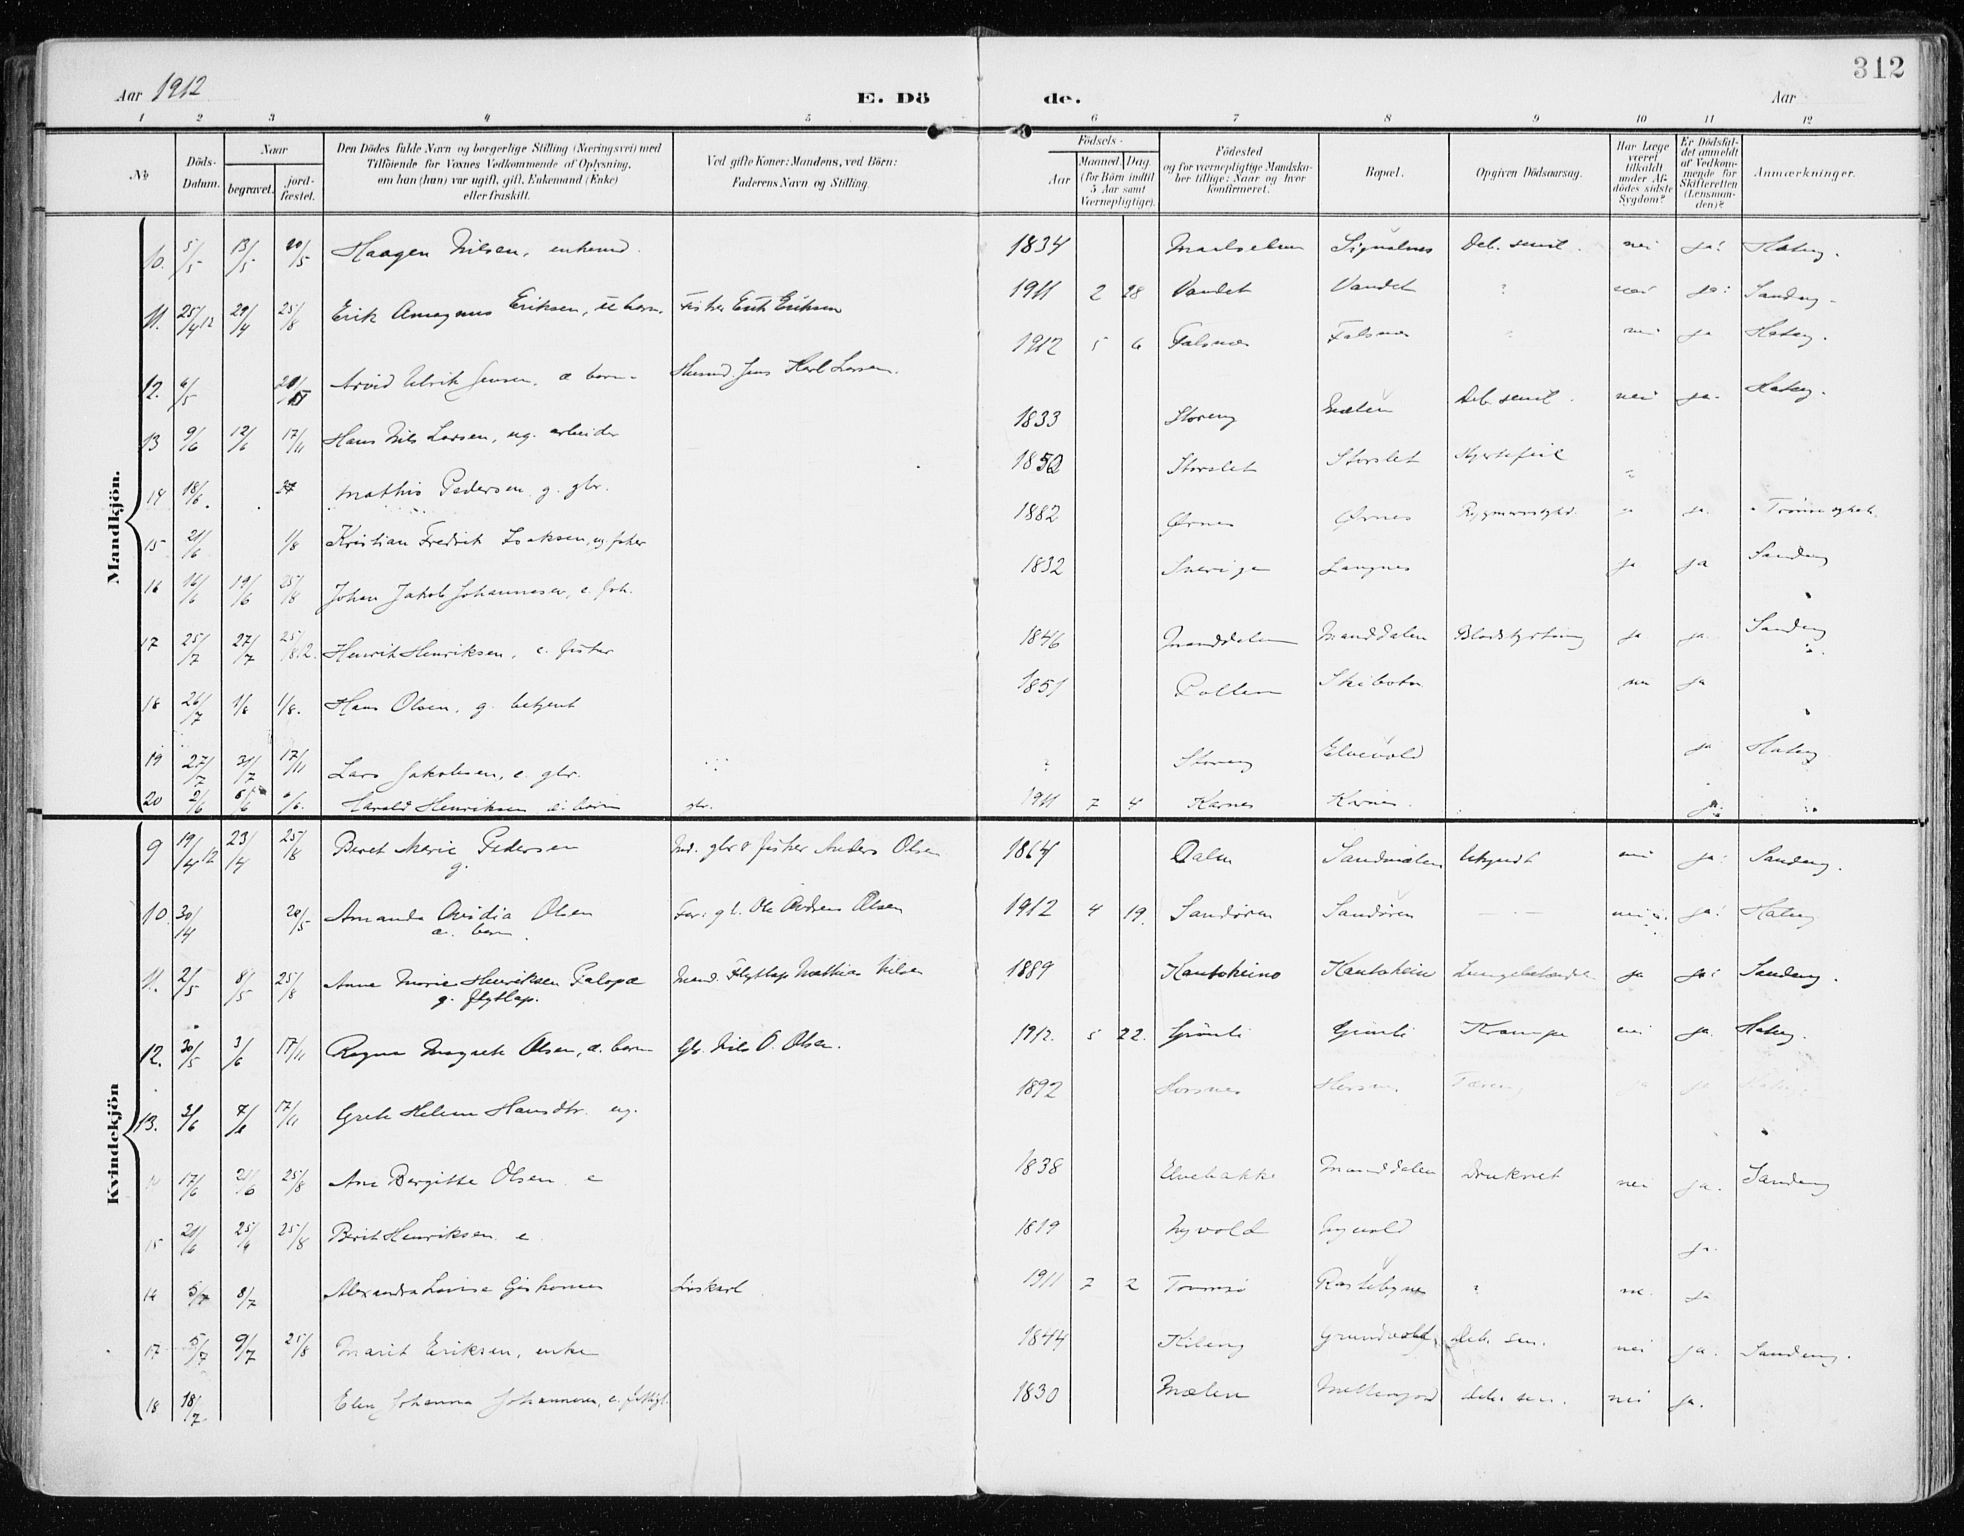 312
Aar 1912 E. Dö de. Aar
1 2 3 4 5 6 7 8 9 10 11 12
No Döds-Datum. Naar begravet. jordfæstet. Den Dödes fulde Navn og borgerlige Stilling (Næringsvei) med Tilföiende for Voxnes Vedkommende af Oplysning, om han (hun) var ugift, gift, Enkemand (Enke) eller fraskilt. Ved gifte Koner: Mandens, ved Börn: Faderens Navn og Stilling. Födsels- Aar Maaned. Dag. (for Börn indtil 5 Aar samt Værnepligtige). Födested og for værnepligtige Mandskaber tillige: Naar og hvor Konfirmeret. Bopæl. Opgiven Dödsaarsag. Har Læge været tilkaldt under Afdödes sidste Sygdom? Er Dödsfaldet anmeldt af Vedkommende for Skifteretten (Lensmanden)? Anmærkninger.
Mandkjön.
10. 5/5 13/5 20/5 Haagen Nilsen, enkemd. 1834 Maalselven Signalnes Deb. senil. nei ja: Hateng.
11. 25/4 12 29/4 25/8 Erik Amagnus Eriksen, æ barn. Fisker Erik Eriksen 1911 2 28 Vandet Vandet ? nei ja: Sandeng.
12. 6/5 20/5 Arvid Ulrik Jensen, æ barn. Husmd. Jens Karl Larsen. 1912 5 6 Falsnes Falsnes nei ja Hateng.
13 9/6 12/6 17/11 Hans Nils Larsen, ug. arbeider 1833 Storeng Deb. senil. nei ja. Hateng.
14 18/6 Mathis Pedersen g. gbr. 1850 Storslet Storslet Hjertefeil
15 21/6 1/8 Kristian Fredrik Isaksen, ug. fisker 1882 Ørnes Ørnes Rygmarvsykd. ja ja. Tromsø sykeh.
16 16/6 19/6 25/8 Johan Jakob Johannesen, e. fisk. 1832 Sverige Langnes ja ja Sandeng
17 25/7 27/7 25/8.12. Henrik Henriksen, e. fisker 1846 Manddalen Manddalen Blodstyrtning ja ja. Sandeng
18 26/7 1/8 1/8. Hans Olsen, g. betjent 1851 Pollen Skibotn nei ja
19 27/7 31/7 17/11 Lars Jakobsen, e. gbr. ? Storeng Elvevold ja Hateng
20 2/6 6/6 6/6. Harald Henriksen æ. barn gbr. 1911 7 4 Karnes Karnes. ja.
Kvindekjön
9 19/4 12 23/4 25/8 Beret Marie Pedersen g. Md. gbr & fisker Anders Olsen 1864 Dalen Sandmælen Ukjendt nei ja: Sandeng.
10. 30/4 20/5 Amanda Ovidia Olsen æ. barn. Far: gb. Ole Olsen 1912 4 19. Sandøren Sandøren — nei ja: Hateng
11. 2/5 8/5 25/8 Anna Marie Henriksen Palopæ g. flytlap. Mand. Flytlap Mathias Nilsen 1889 Kautokeino Kautokeino Lungebetændelse ja ja: Sandeng.
12. 30/5 3/6 17/11 Ragna Magrete Olsen, æ. barn Gbr. Nils O. Olsen. 1912. 5 22. Grønli Grønli Krampe nei ja. Hateng.
13. 3/6 7/6 17/11 Grete Helene Hansdtr. ug. 1892 Horsnes Horsnes Tæring ja ja
17/6 21/6 25/8 Ane Bergitte Olsen e 1838 Elvebakke Manddalen Druknet nei ja. Sandeng
15 21/6 25/6 25/8 Berit Henriksen e. 1819 Nyvold Nyvold ja.
16 5/7 8/7 Alexandra Lovise 1911 7 2 Tromsø Rastebynes ? ne. ja
17 5/7 9/7 25/8 Marit Eriksen, enke 1844 Kileng Grundvold deb. sen. nei ja. Sandeng.
18 18/7 Elen Johanna Johannesen, e. fattigl. 1830 Mælen deb. sen. nei ja.